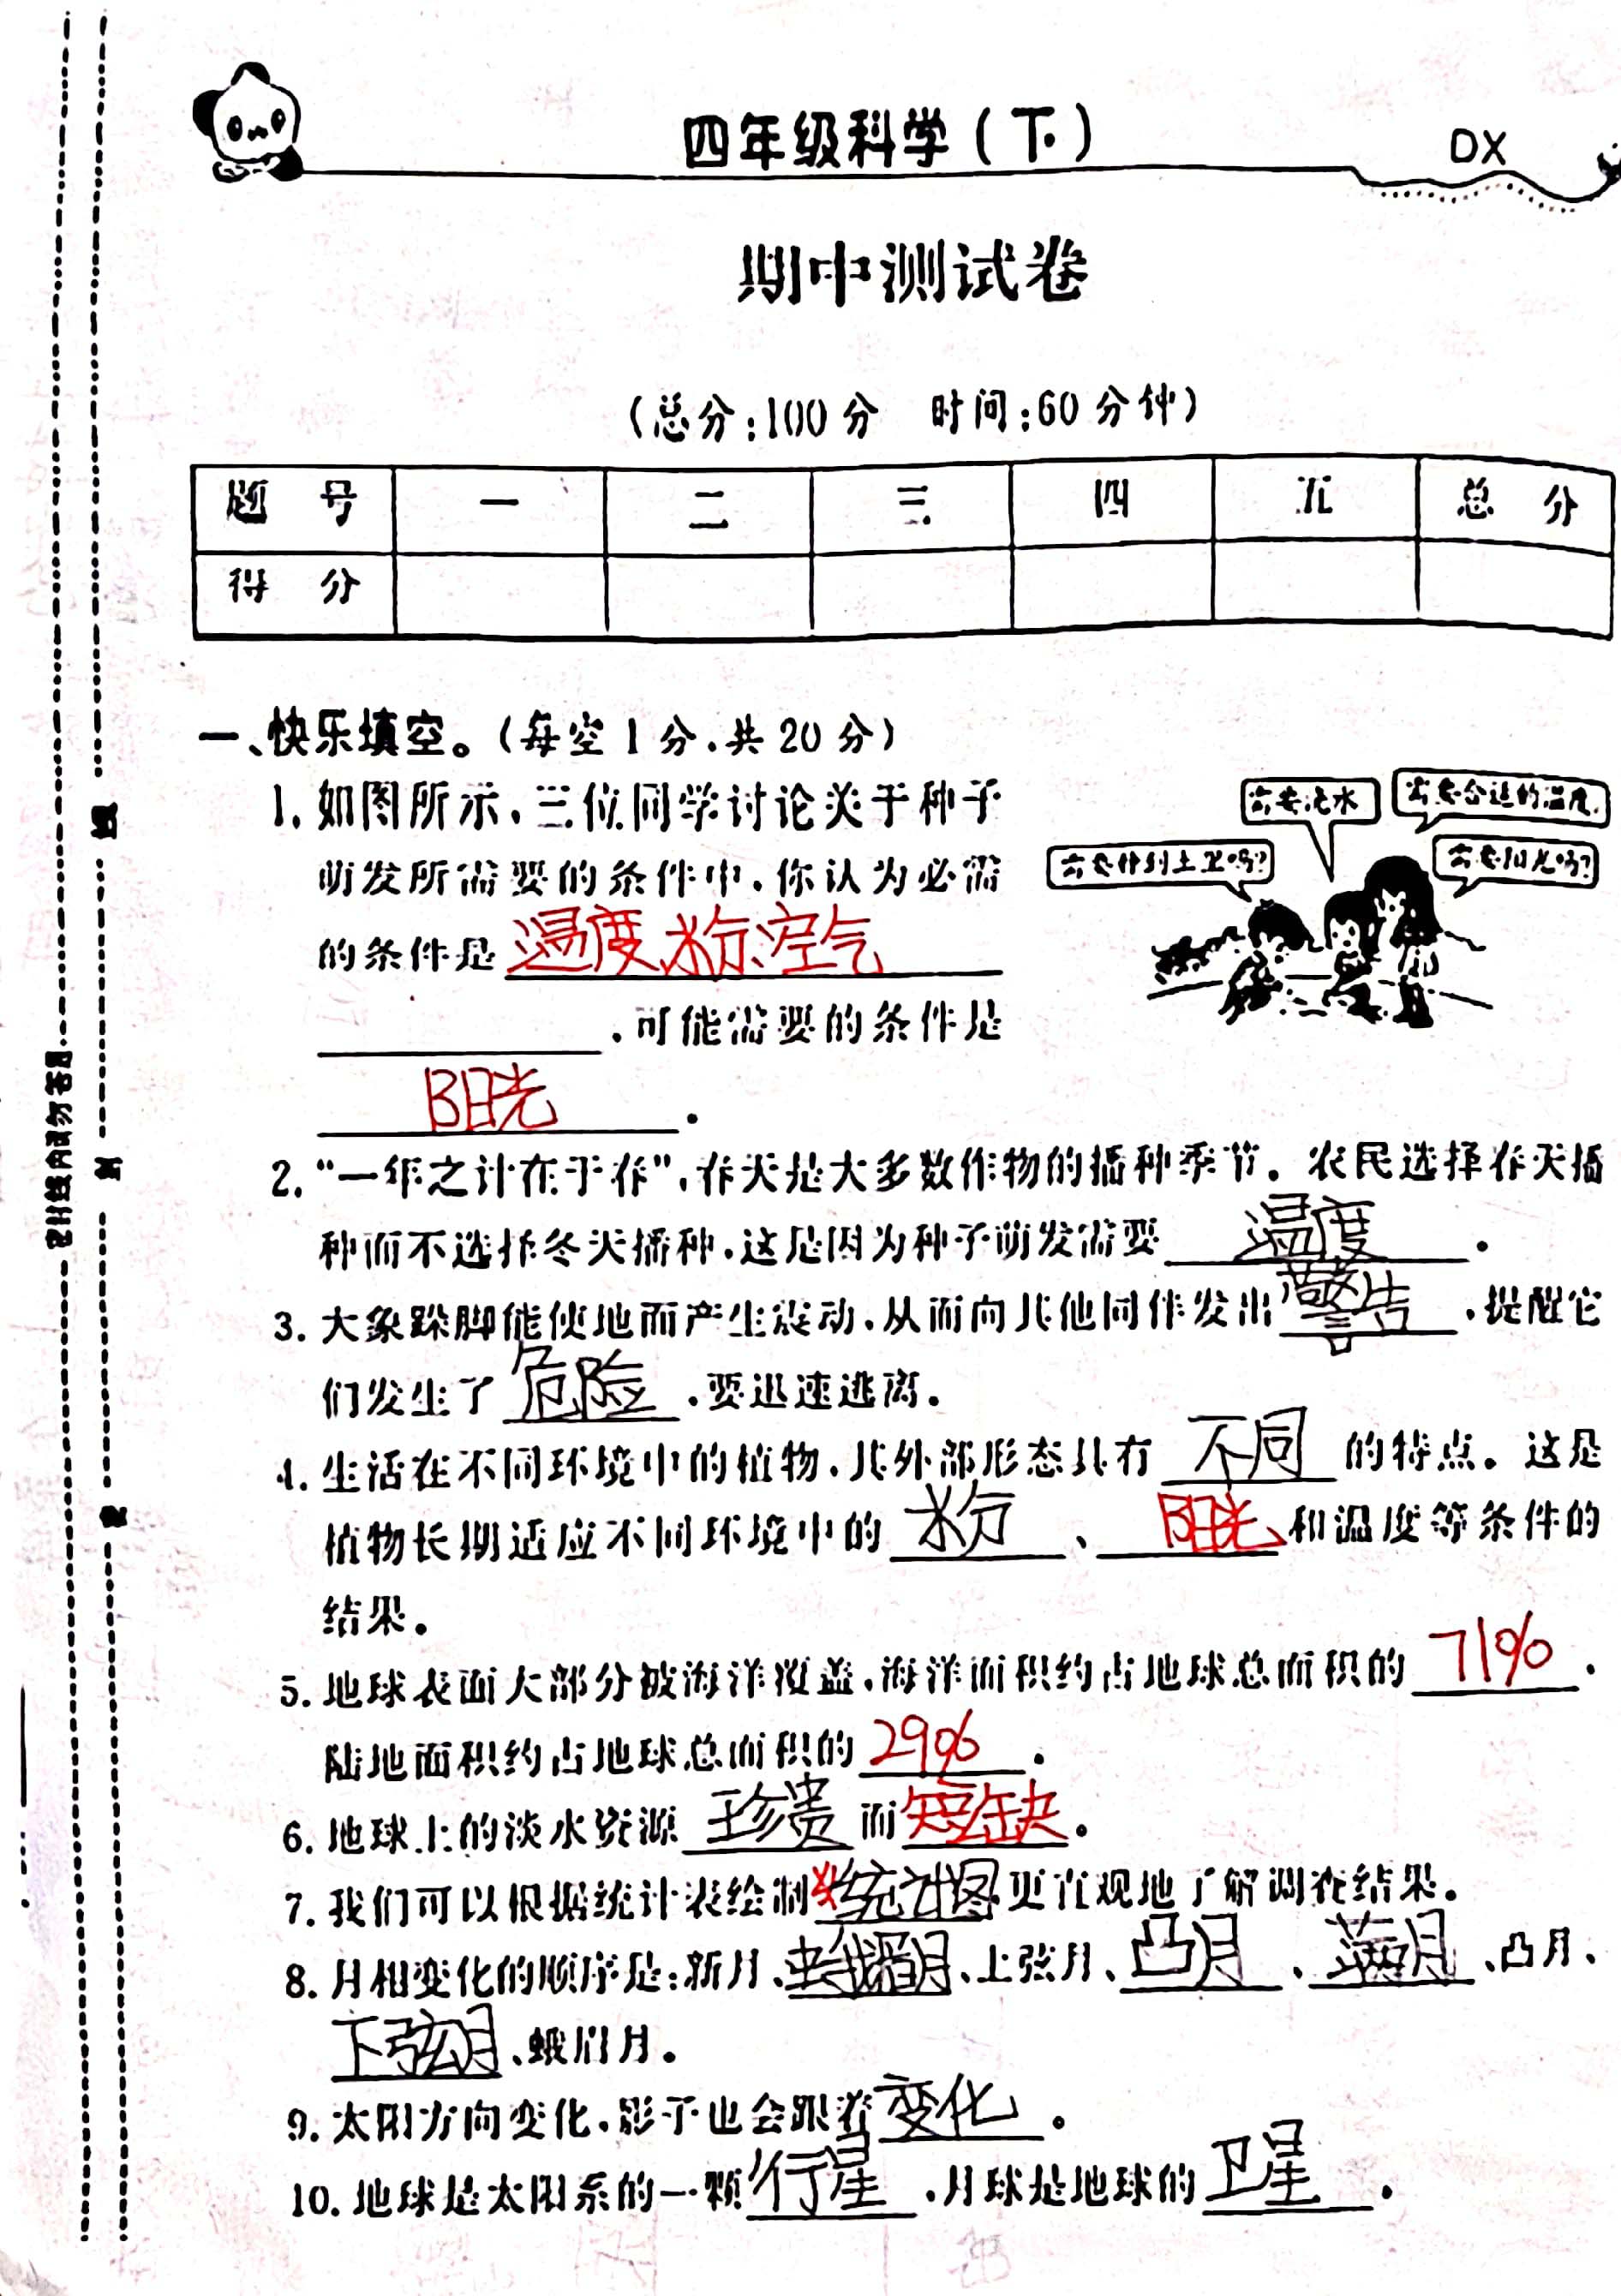 四年级科学(下)
DX
期中测试卷
(总分:100分 时间:60分钟)
题号 一 二 三 四 五 总分
得分
一、快乐填空。(每空1分,共20分)
1. 如图所示,三位同学讨论关于种子
萌发所需要的条件中,你认为必需
的条件是温度、水分、空气
,可能需要的条件是
阳光.
需要浇水
需要合适的温度.
需要种到土里吗?
需要阳光吗?
2. “一年之计在于春”,春天是大多数作物的播种季节。农民选择春天播
种而不选择冬天播种,这是因为种子萌发需要 温度.
3. 大象跺脚能使地面产生震动,从而向其他同伴发出警告,提醒它
们发生了危险,要迅速逃离.
4. 生活在不同环境中的植物,其外部形态具有 不同 的特点。这是
植物长期适应不同环境中的 水分、阳光和温度等条件的
结果。
5. 地球表面大部分被海洋覆盖,海洋面积约占地球总面积的 71%.
陆地面积约占地球总面积的29%.
6. 地球上的淡水资源 珍贵 而短缺。
7. 我们可以根据统计表绘制统计图更直观地了解调查结果。
8. 月相变化的顺序是:新月、蛾眉月、上弦月、凸月、满月、凸月、
下弦月、蛾眉月。
9. 太阳方向变化,影子也会跟着变化。
10. 地球是太阳系的一颗行星,月球是地球的卫星.
密封线内请勿答题